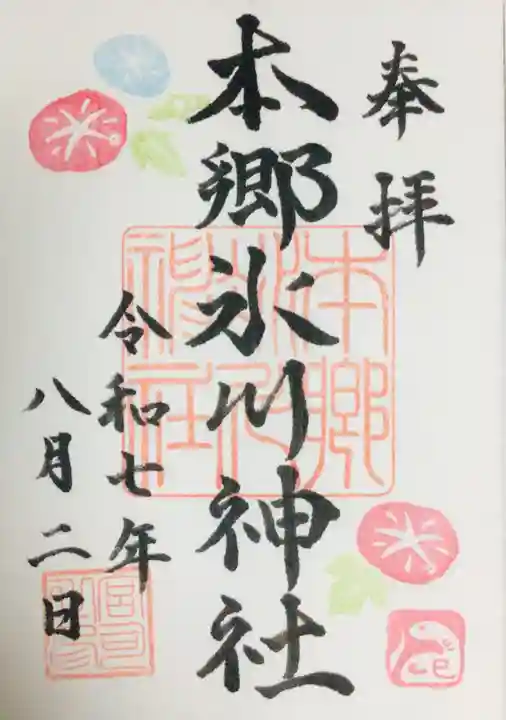 奉拝
本郷氷川神社
令和七年
八月二日
本郷氷川神社